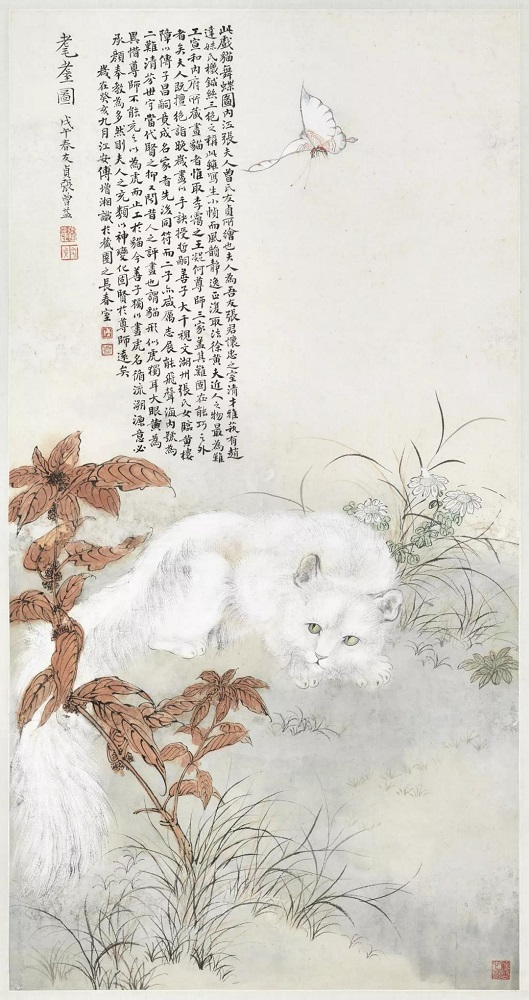 此戲貓舞蝶圖內江張夫人曾氏友貞所繪也夫人為吾友張君懷忠之室清才雅蓺有趙
達妹氏機鍼絲三絕之稱此雖寫生小幀而風韻靜逸正復取法徐黃夫近人之物最為難
工宣和內府所藏畫貓者惟取李靄之王凝何尊師三家蓋其難固在能巧之外
者矣夫人既擅絕詣晚歲以手訣授哲嗣善子大千視文湖州張氏女臨黃樓
障以傳子昌嗣成名家者先後同符而二子亦咸厲志展能飛聲海內號為
二難清芬世守當代賢之抑又聞昔人之評畫也謂貓形似虎獨耳大眼黃為
異惜尊師不能充之以為虎而止工於貓今善子獨以畫虎名循流溯源意必
承顏奉教為多然則夫人之充類以神變化固賢於尊師遠矣
歲在癸亥九月江安傅增湘識於藏園之長春室
耄耋圖 戊午春友貞張曾益